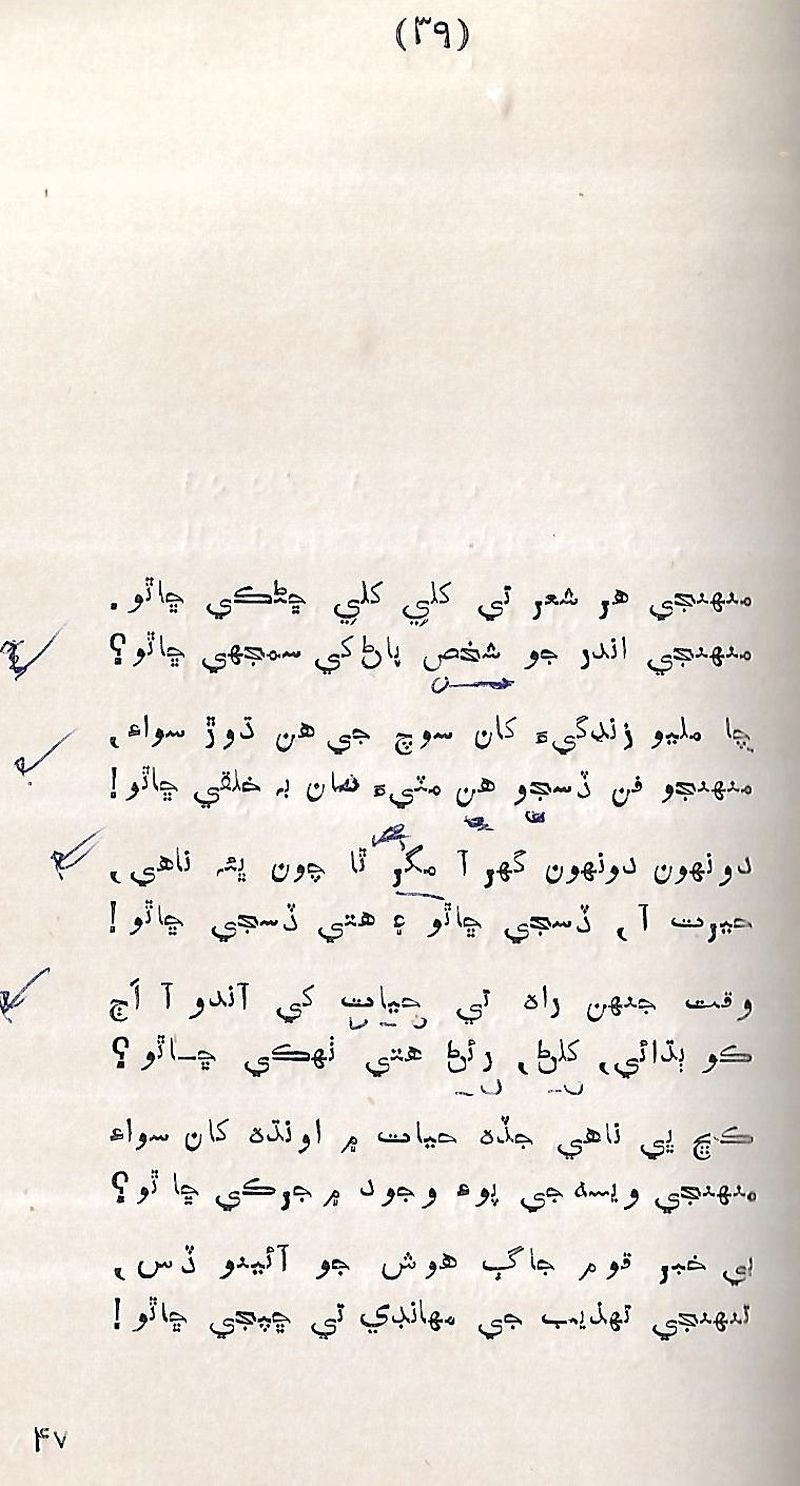 (۳۹)
منهنجي هر شعر تي ڪلي ڪلي ڇڻڪي ڇاٿو.
منهنجي اندر جو شخص پاڻ کي سمجهي ڇاٿو؟
ڇا مليو زندگيءَ کان سوچ جي هن ڊوڙ سواءِ,
منهنجو فن ڏسجو هن مٽيءَ مان به خلقي ڇاٿو!
دونهون دونهون گهر آ مگر ٿا چون ڀڻ ناهي,
حيرت آ, ڏسجي ڇاٿو ۽ هتي ڏسجي ڇاٿو!
وقت جنهن راه تي حيات کي آندو آ اَڄ
ڪو ٻڌائي, کلڻ, رئڻ هتي ٺهڪي ڇاٿو؟
ڪڇ ڀي ناهي جڏه حيات ۾ اونڌه کان سواءِ
منهنجي ويسه جي پوءِ وجود ۾ جرڪي ڇا ٿو؟
بي خبر قوم جاڳ هوش جو آئينو ڏس,
تنهنجي تهذيب جي مهانڊي تي ڇپجي ڇاٿو!
۴۷